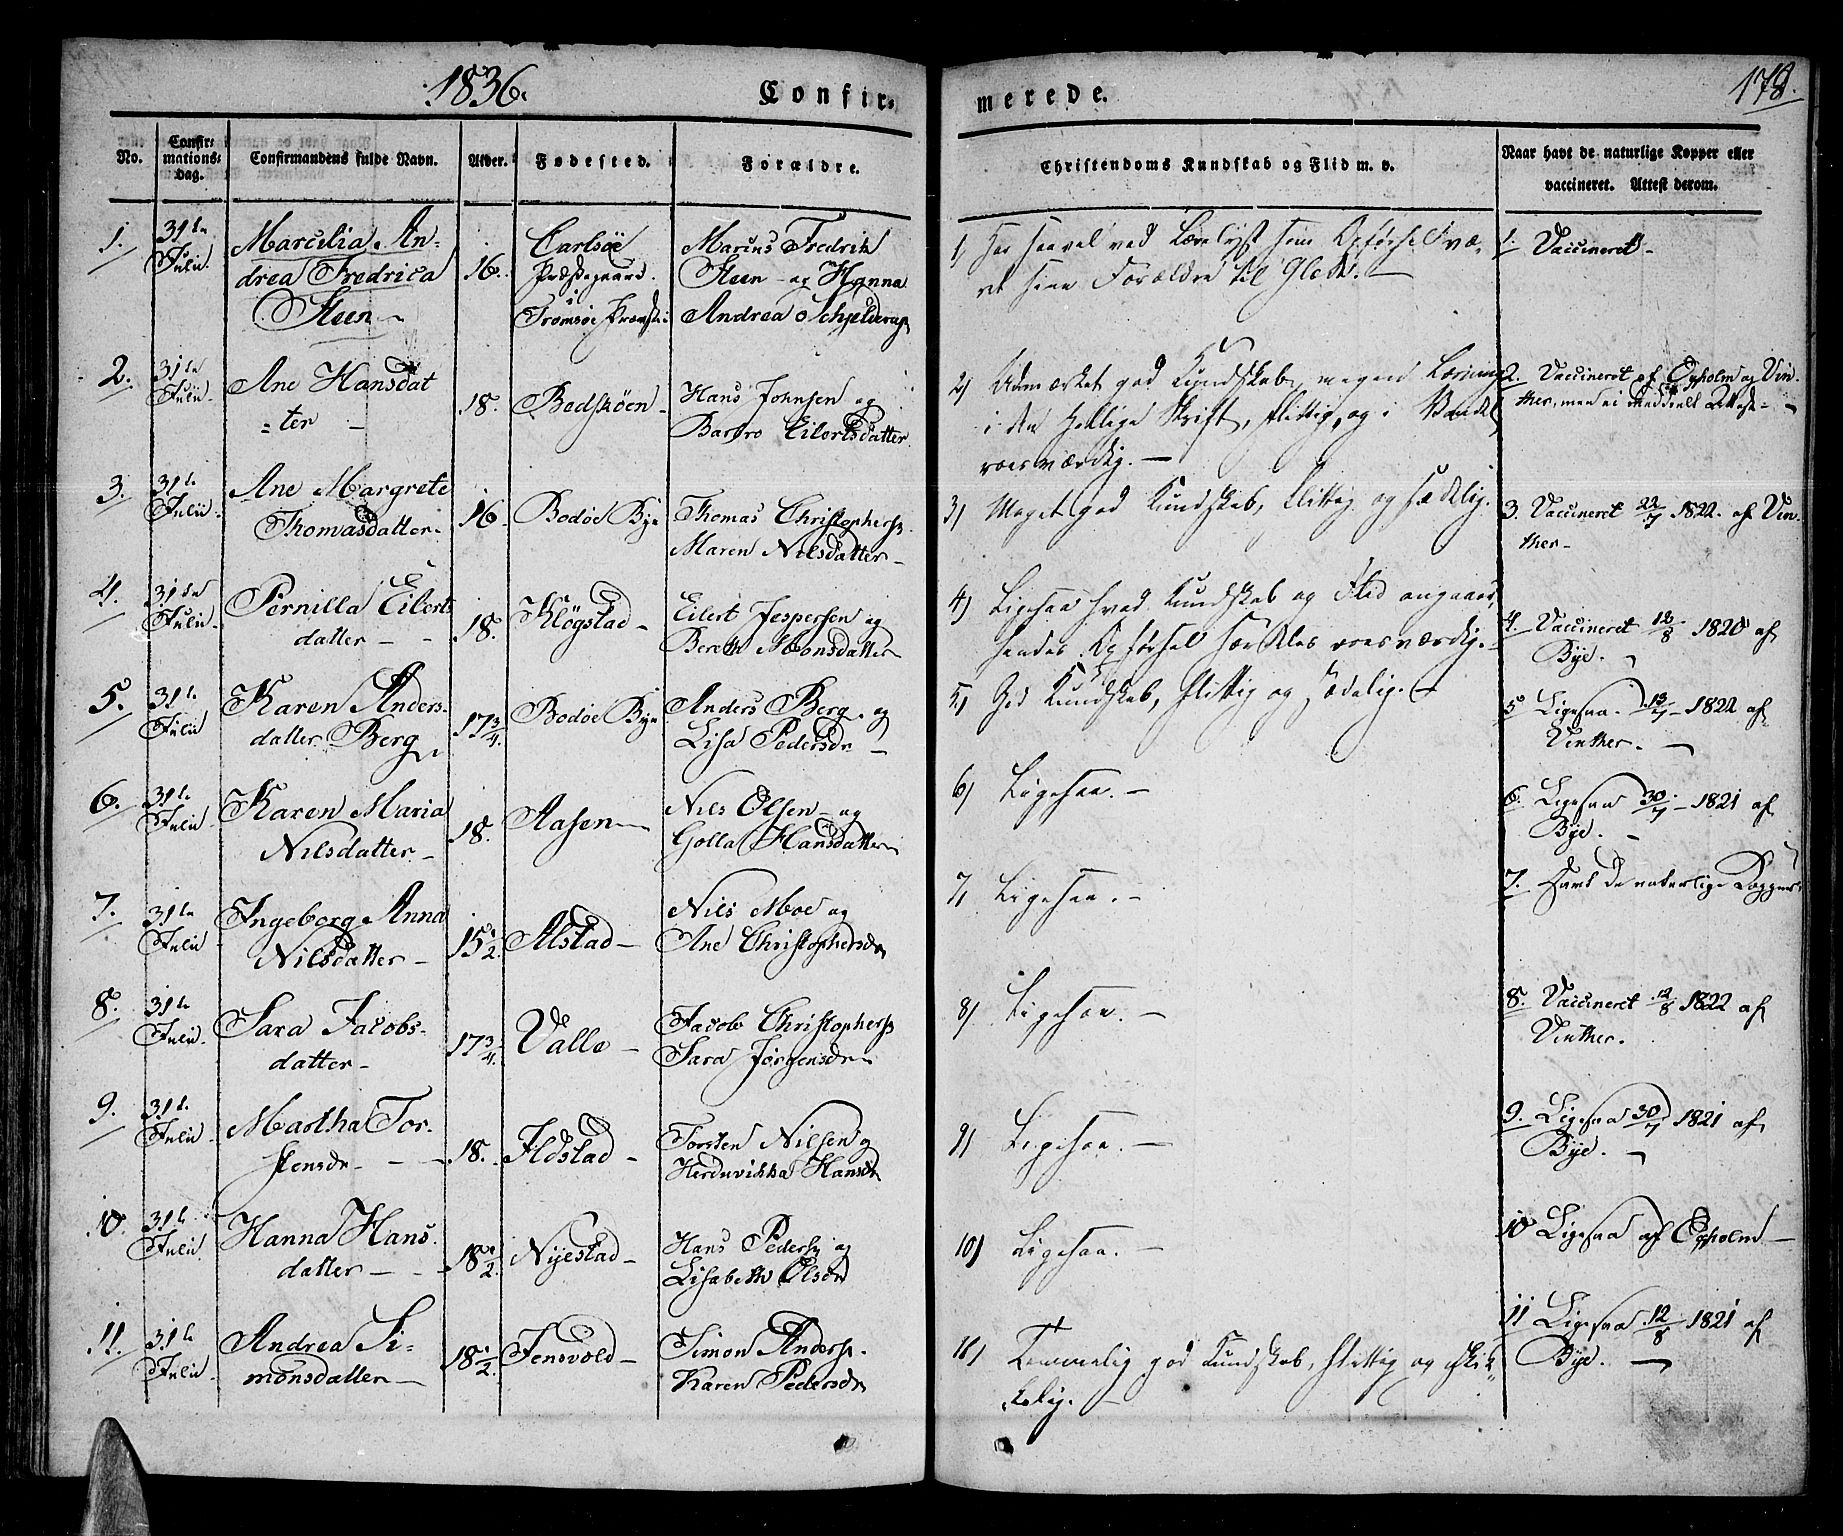 1836.
Confir-
merede.
178.
No.
Confir-
mations-
dag.
Confirmandens fulde Navn.
Alder.
Fødested.
Forældre.
Christendoms Kundskab og Flid m. v.
Naar havt de naturlige Kopper eller
vaccineret. Attest derom.
1.
31te
Julii.
Marcilia An-
drea Fredrica
Steen
16.
Carlsöe
Præstegaard
i
Tromsöe
Marcus Fredrik
Steen og Hanna
Andrea Schjelderup
1) Har saavel ved Lærelyst som Opførsel væ-
ret sine Forældre til Glæde.
1. Vaccineret
2.
31te
Julii
Ane Hansdat
ter
18.
Bodsköen
Hans Johnsen og
Barbro Eilertsdatter
2) Udmærket god Kundskab, megen Læsning
i den hellige Skrift, flittig, og i Vandel
roesværdig.
2. Vaccineret af Opholm og Vin-
ther, men ei meddeelt Attest
3.
31te
Julii
Ane Margrete
Thomasdatter
16.
Bodöe Bye
Thomas Christophers.
Maren Nilsdatter
3) Meget god Kundskab, flittig og sædelig.
3. Vaccineret 22/7 1822 af Vin-
ther
4.
31te
Julii
Pernilla Eilerts
datter
18.
Klögstad
Eilert Jespersen og
Bereth Monsdatter
4) Ligesaa hvad Kundskab og Flid angaaer,
hendes Opførsel særdeles roesværdig.
4. Vaccineret 12/8 1820 af
Bye.
5.
31te
Julii
Karen Anders-
datter Berg
17 3/4.
Bodöe Bye
Anders Berg og
Lisa Pedersdr
5) God Kundskab, flittig og sædelig.
5 Ligesaa 13/7 1822 af
Vinther.
6.
31te
Julii
Karen Maria
Nilsdatter
18.
Aasen
Nils Olsen og
Golla Hansdatter
6) Ligesaa.
6. Ligesaa 30/7 1821 af
Bye.
7.
31te
Julii
Ingeborg Anna
Nilsdatter
15 1/2.
Alstad
Nils Moe og
Ane Christophersdr
7) Ligesaa.
7. Havt de naturlige Kopper
8.
31te
Julii
Sara Jacobs-
datter
17 3/4.
Valle
Jacob Christophers
Sara Jörgensdr
8) Ligesaa.
8. Vaccineret 12/8 1822 af
Vinther.
9.
31te
Julii
Martha Tor-
stensdr
18.
Ildstad
Torsten Nilsen og
Hansdr
9) Ligesaa.
9. Ligesaa 30/7 1821 af
Bye.
10.
31te
Julii
Hanna Hans
datter
18 1/2.
Nyestad
Hans Peders og
Lisabeth Olsdr
10) Ligesaa.
10 Ligesaa af Opholm
11.
31te
Julii
Andrea Si-
monsdatter
18 1/2.
Jensvold
Simon Anders.
Karen Pedersdr
11) Temmelig god Kundskab, flittig og skik-
kelig.
11 Ligesaa 12/8 1821 af
Bye.